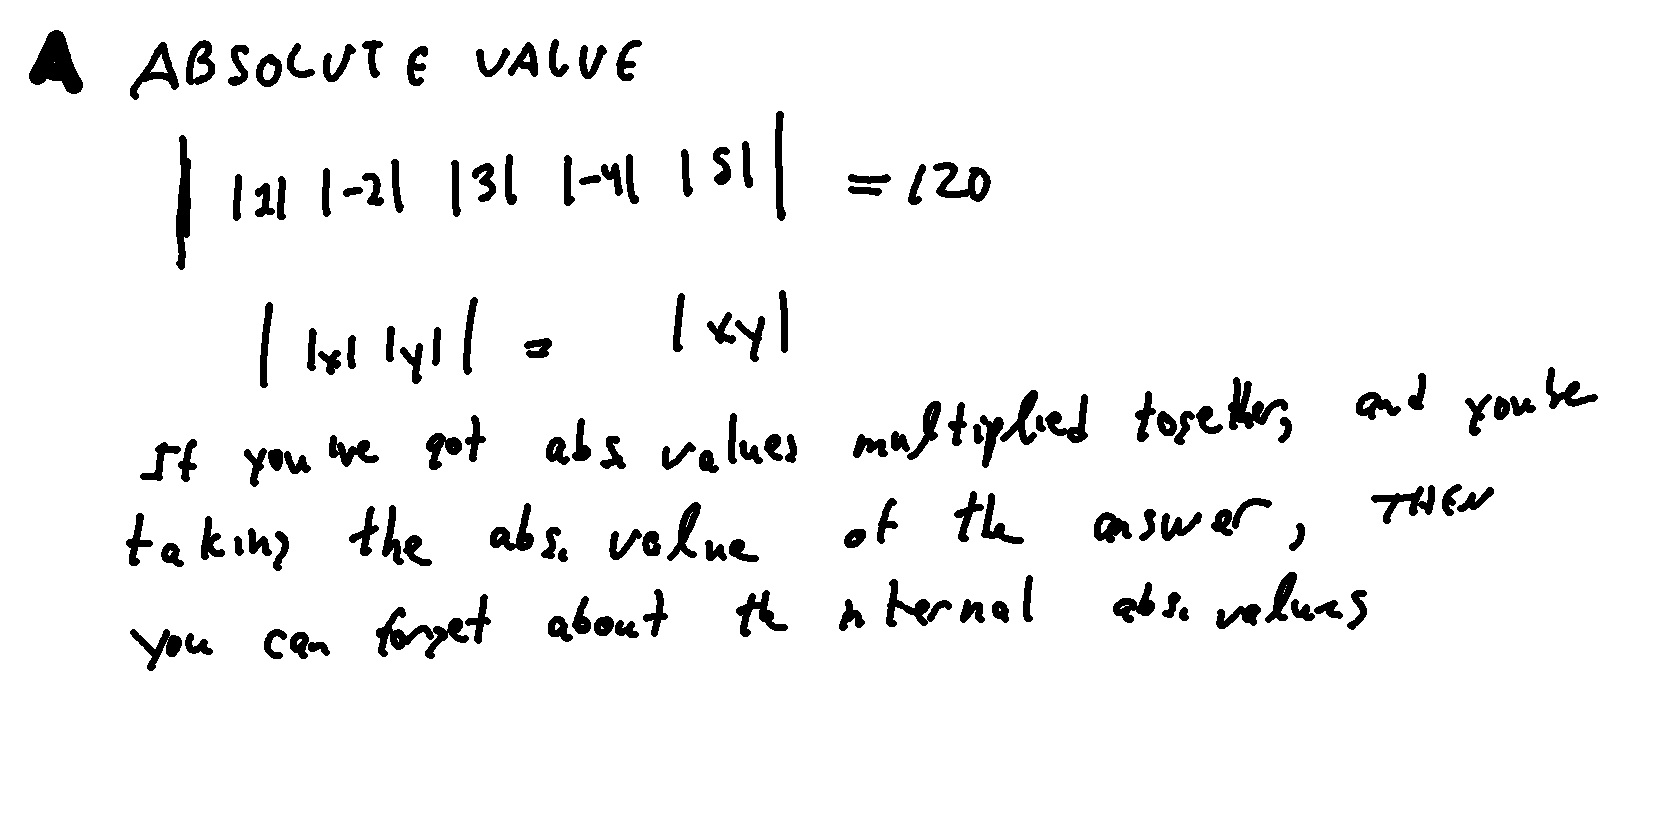 A ABSOLUTE VALUE
| |1| |-2| |3| |-4| |5| | = 120
| |x| |y| | = |xy|
If you've got abs values multiplied together, and you're
taking the abs. value of the answer, THEN
you can forget about the internal abs. values